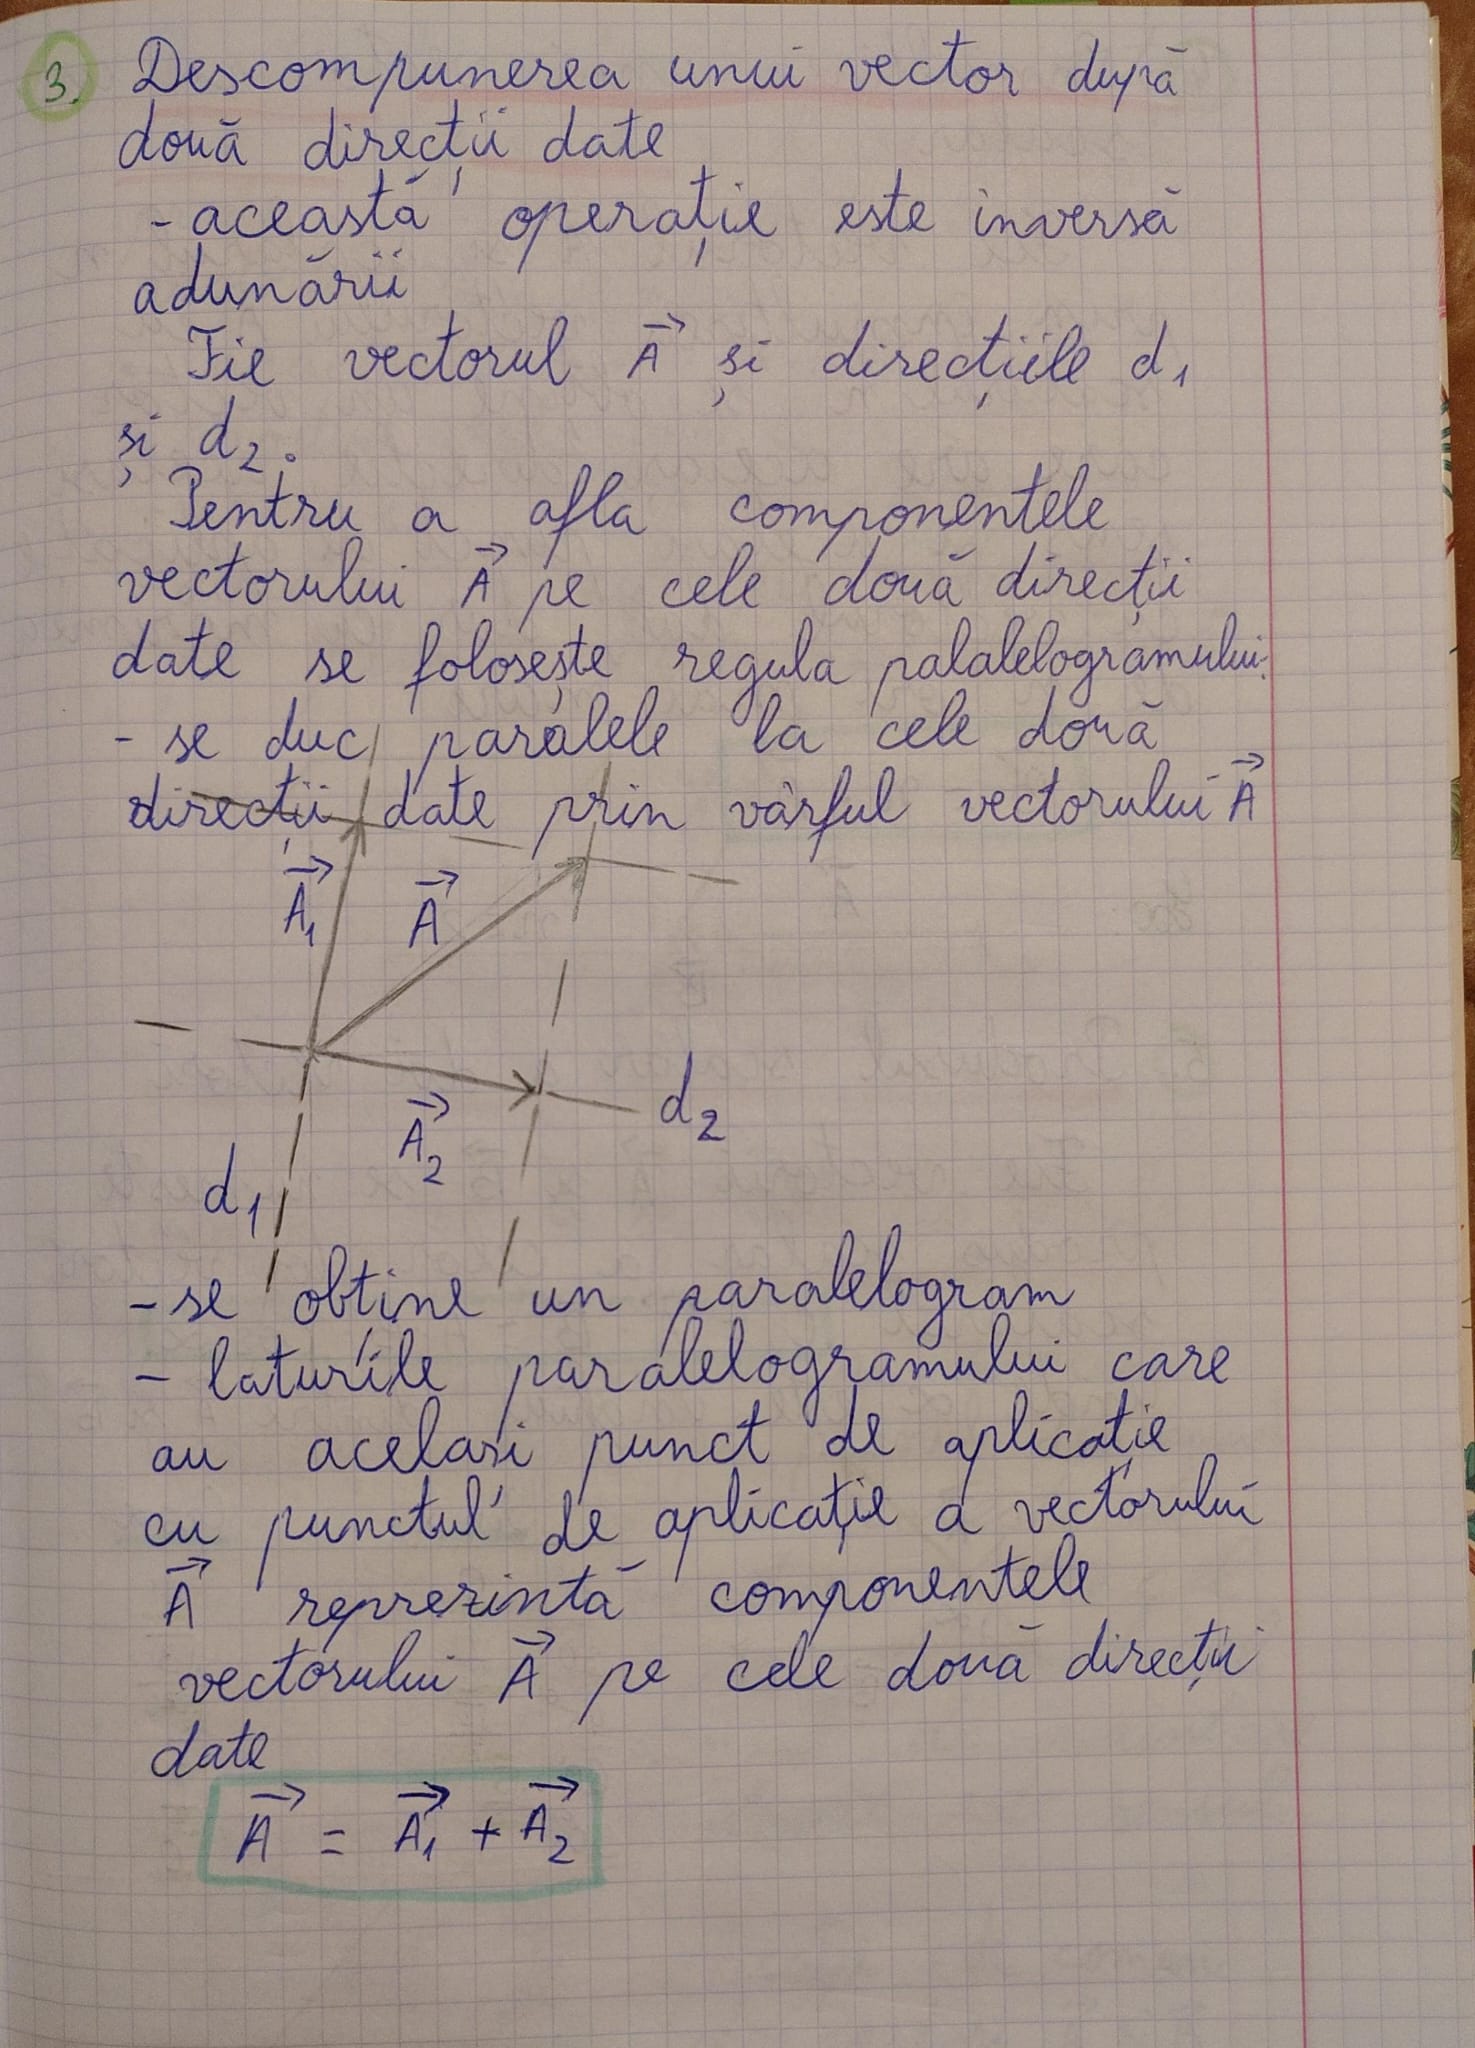 3. Descompunerea unui vector după
două direcții date
- această operație este inversă
adunării
Fie vectorul A⃗ și direcțiile d₁
și d₂.
Pentru a afla componentele
vectorului A⃗ pe cele două direcții
date se folosește regula palalelogramului:
- se duc paralele la cele două
direcții date prin vârful vectorului A⃗
A⃗₁ A⃗
A⃗₂ d₂
d₁
- se obține un paralelogram
- laturile paralelogramului care
au același punct de aplicație
cu punctul de aplicație a vectorului
A⃗ reprezintă componentele
vectorului A⃗ pe cele două direcții
date
A⃗ = A⃗₁ + A⃗₂